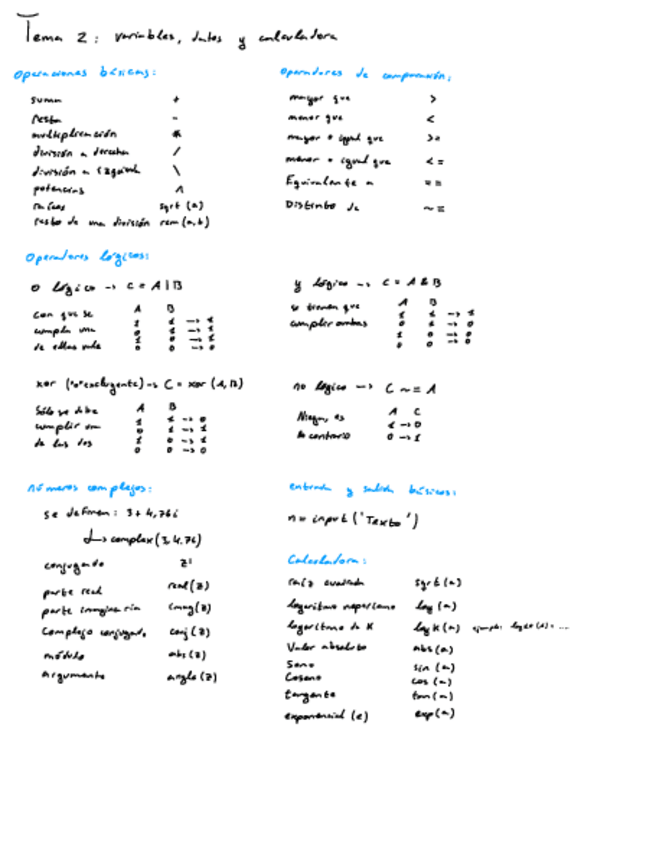 Tema 2: variables, datos y calculadora
Operaciones básicas:
suma +
resta -
multiplicación *
división a derecha /
división a izquierda \
potencias ^
raíces sqrt (a)
resto de una división rem (a,b)
Operadores de comparación:
mayor que >
menor que <
mayor o igual que >=
menor o igual que <=
Equivalente a ==
Distinto de ~=
Operadores lógicos:
o lógico -> C = A | B
con que se A B
cumpla una 1 1 -> 1
1 0 -> 1
de ellas vale 0 1 -> 1
0 0 -> 0
y lógico -> C = A & B
se tienen que A B
cumplir ambas 1 1 -> 1
0 1 -> 0
1 0 -> 0
0 0 -> 0
xor ("o" excluyente) -> C = xor (A, B)
Sólo se debe A B
cumplir una 1 1 -> 0
0 1 -> 1
de las dos 1 0 -> 1
0 0 -> 0
no lógico -> C ~= A
Niega, es A C
lo contrario 1 -> 0
0 -> 1
números complejos:
se definen: 3 + 4,76i
complex (3, 4.76)
conjugado z'
parte real real (z)
parte imaginaria imag (z)
Complejo conjugado conj (z)
módulo abs (z)
argumento angle (z)
entrada y salida básicas:
n = input ('Texto')
Calculadora:
raíz cuadrada sqrt (a)
logaritmo neperiano log (a)
logaritmo de K log K (a) ejemplo:
Valor absoluto abs (a)
Seno sin (a)
Coseno cos (a)
tangente tan (a)
exponencial (e) exp (a)